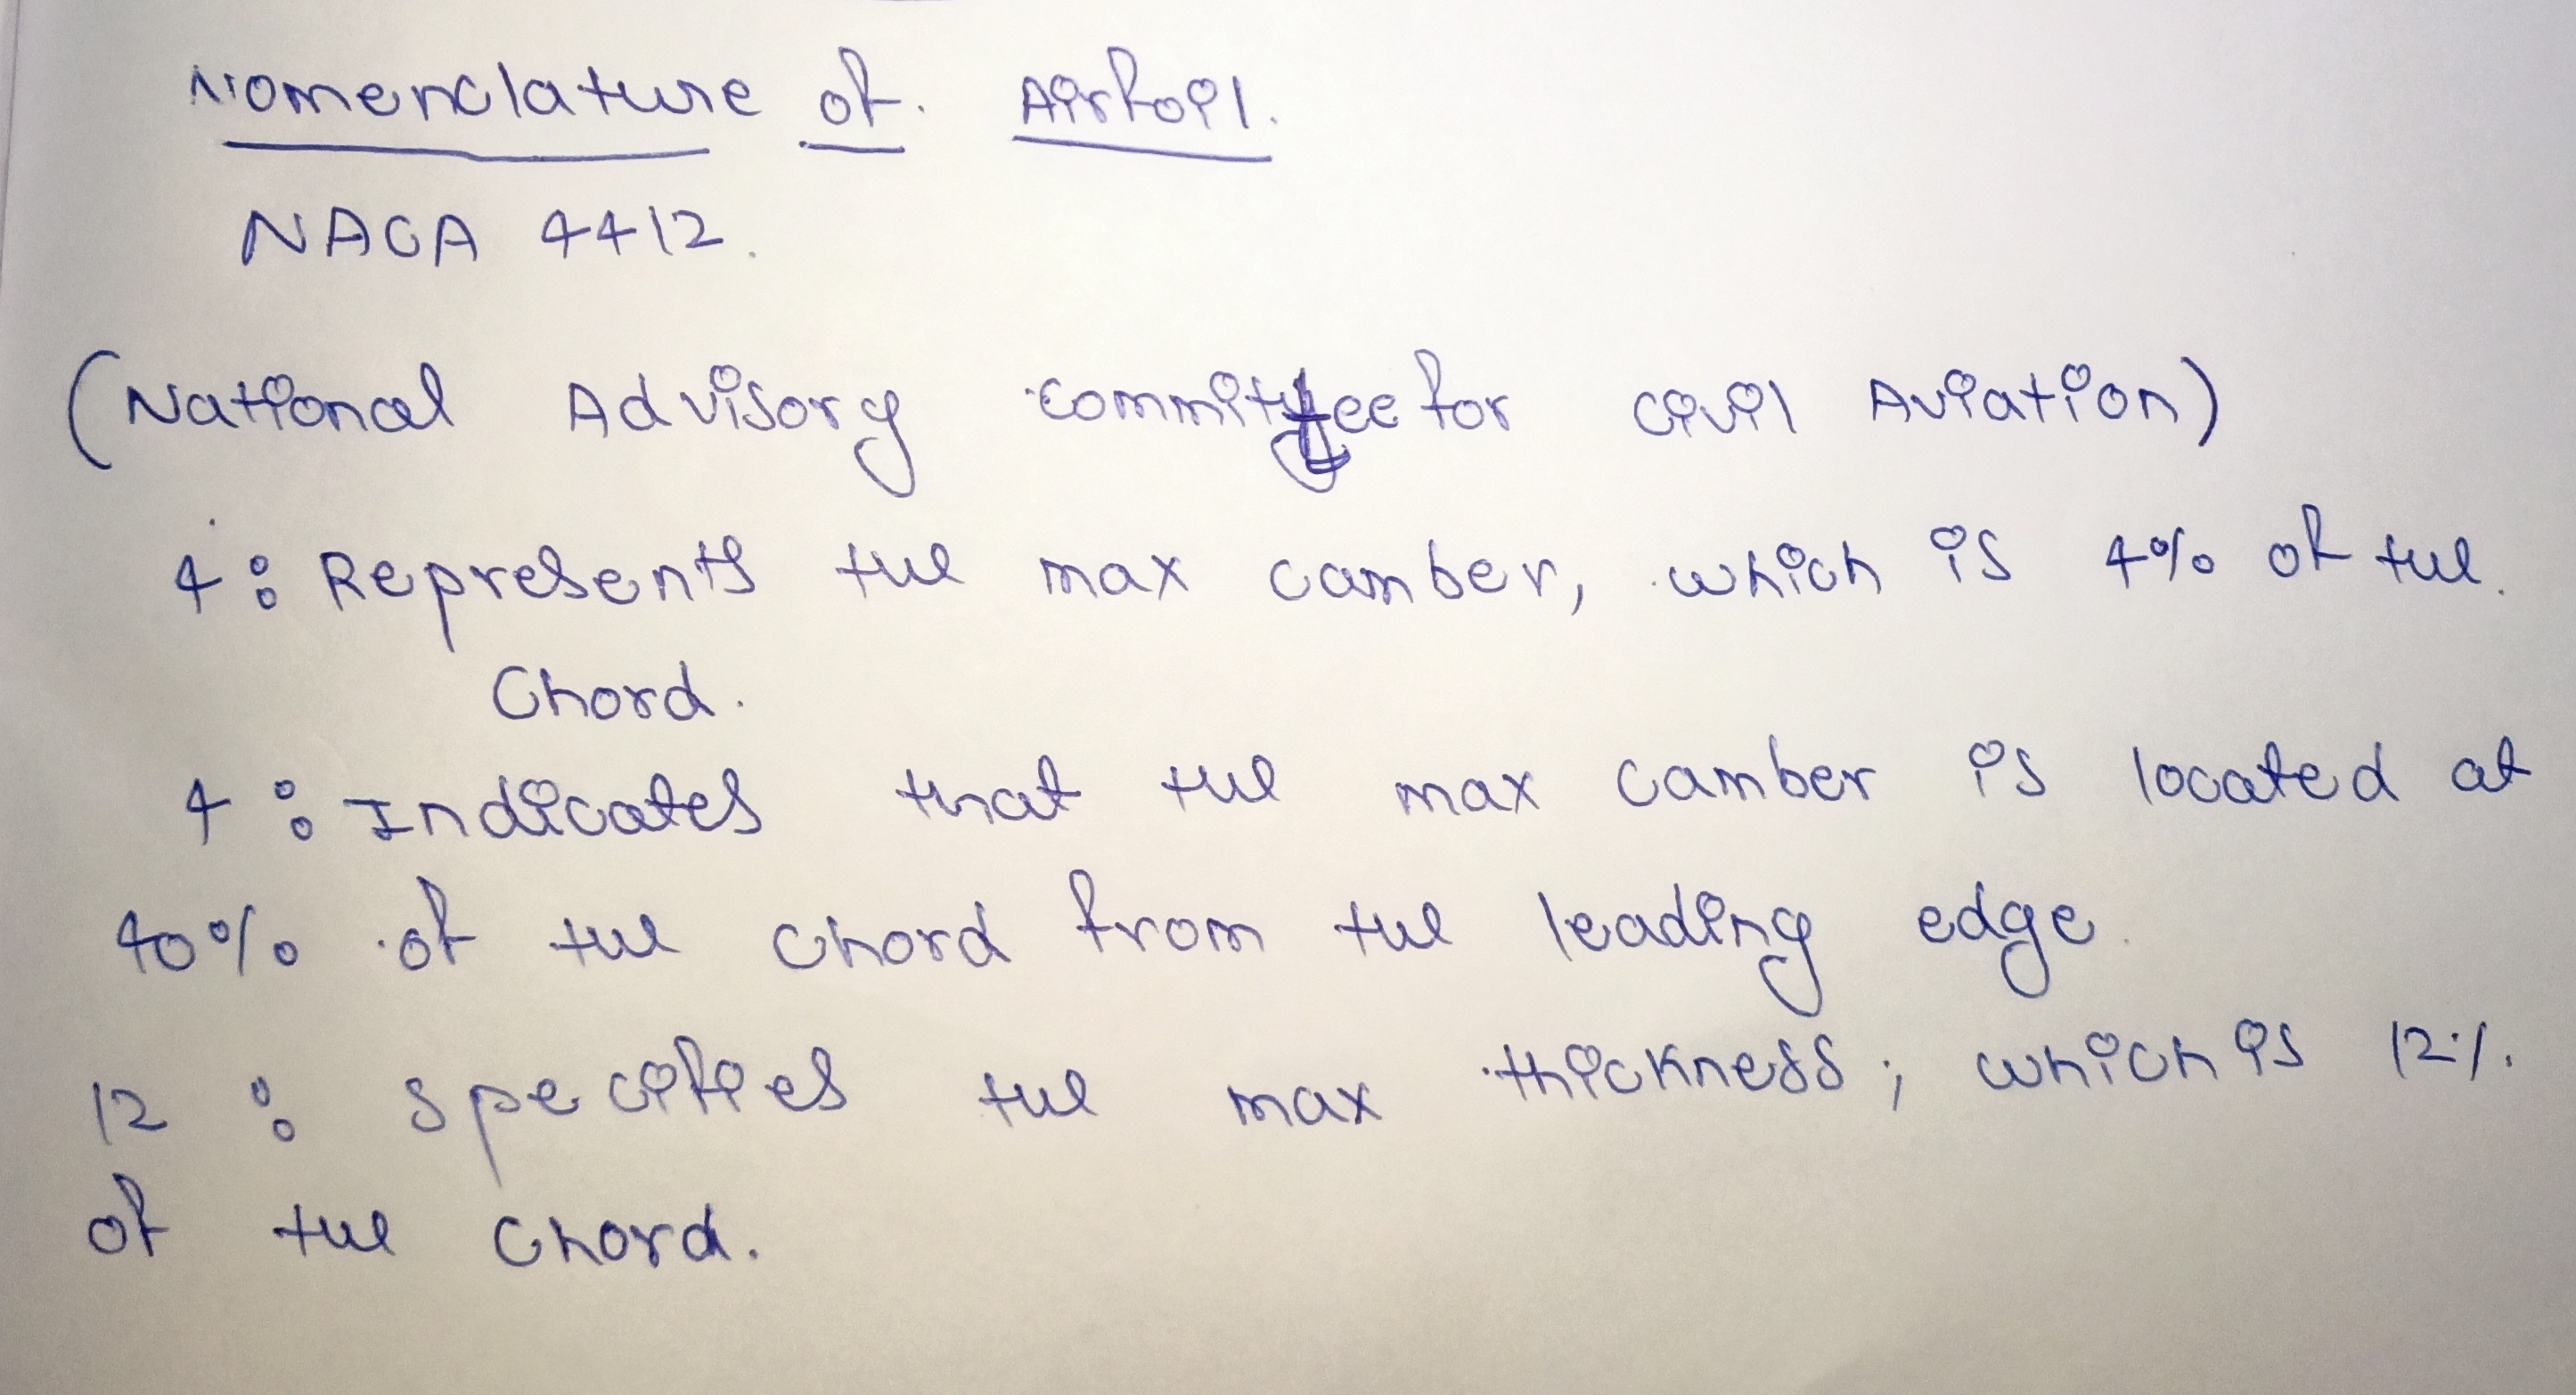 Nomenclature of Airfoil.
NACA 4412.
(National Advisory committee for civil Aviation)
4: Represents the max camber, which is 4% of the
Chord.
4: Indicates that the max camber is located at
40% of the chord from the leading edge.
12: specifies the max thickness, which is 12%
of the chord.